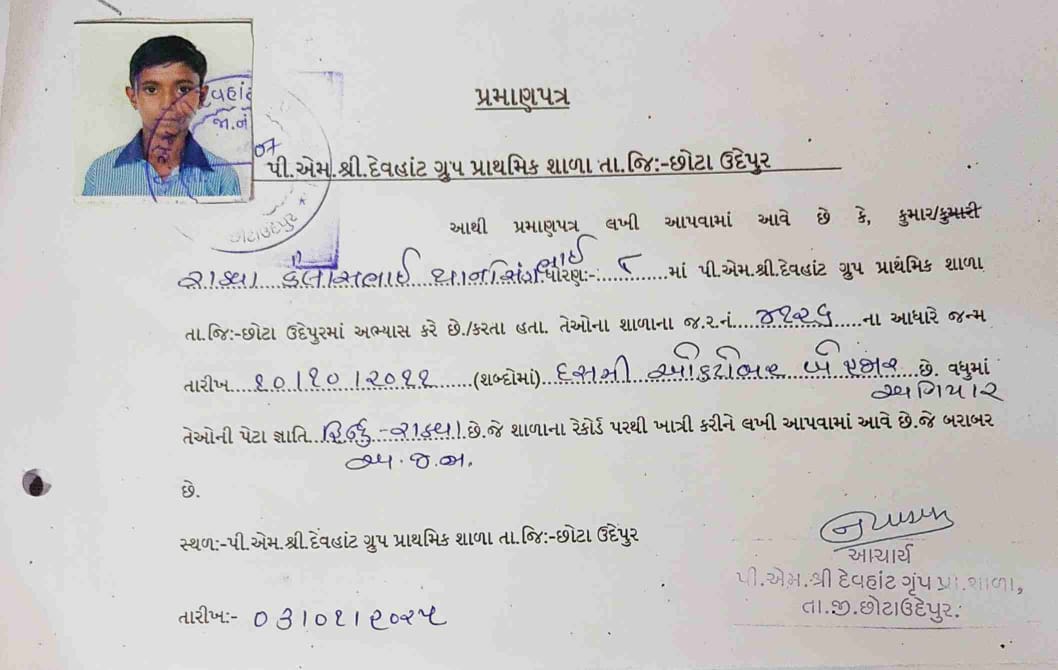 દેવહાંટ
જા.નં
07
છોટાઉદેપુર
પ્રમાણપત્ર
પી.એમ.શ્રી.દેવહાંટ ગ્રુપ પ્રાથમિક શાળા તા.જિ:-છોટા ઉદેપુર
આથી પ્રમાણપત્ર લખી આપવામાં આવે છે કે, કુમાર/કુમારી
રાઠવા કૈલાસભાઈ થાનસિંગભાઈ ધોરણ:-: ૮ માં પી.એમ.શ્રી.દેવહાંટ ગ્રુપ પ્રાથમિક શાળા
તા.જિ:-છોટા ઉદેપુરમાં અભ્યાસ કરે છે./કરતા હતા. તેઓના શાળાના જ.ર.નં. ૪૧૨૬ ના આધારે જન્મ
તારીખ ૧૦/૧૦/૨૦૧૧ (શબ્દોમાં) દસમી ઓક્ટોબર બે હજાર છે. વધુમાં
અગિયાર
તેઓની પેટા જ્ઞાતિ હિન્દુ -રાઠવા છે.જે શાળાના રેકોર્ડ પરથી ખાત્રી કરીને લખી આપવામાં આવે છે.જે બરાબર
અ.જ.જા.
છે.
સ્થળ:-પી.એમ.શ્રી.દેવહાંટ ગ્રુપ પ્રાથમિક શાળા તા.જિ:-છોટા ઉદેપુર
આચાર્ય
પી.એમ.શ્રી દેવહાંટ ગૃપ પ્રા.શાળા,
તા.જી.છોટાઉદેપુર.
તારીખ:- ૦૩/૦૧/૨૦૨૫